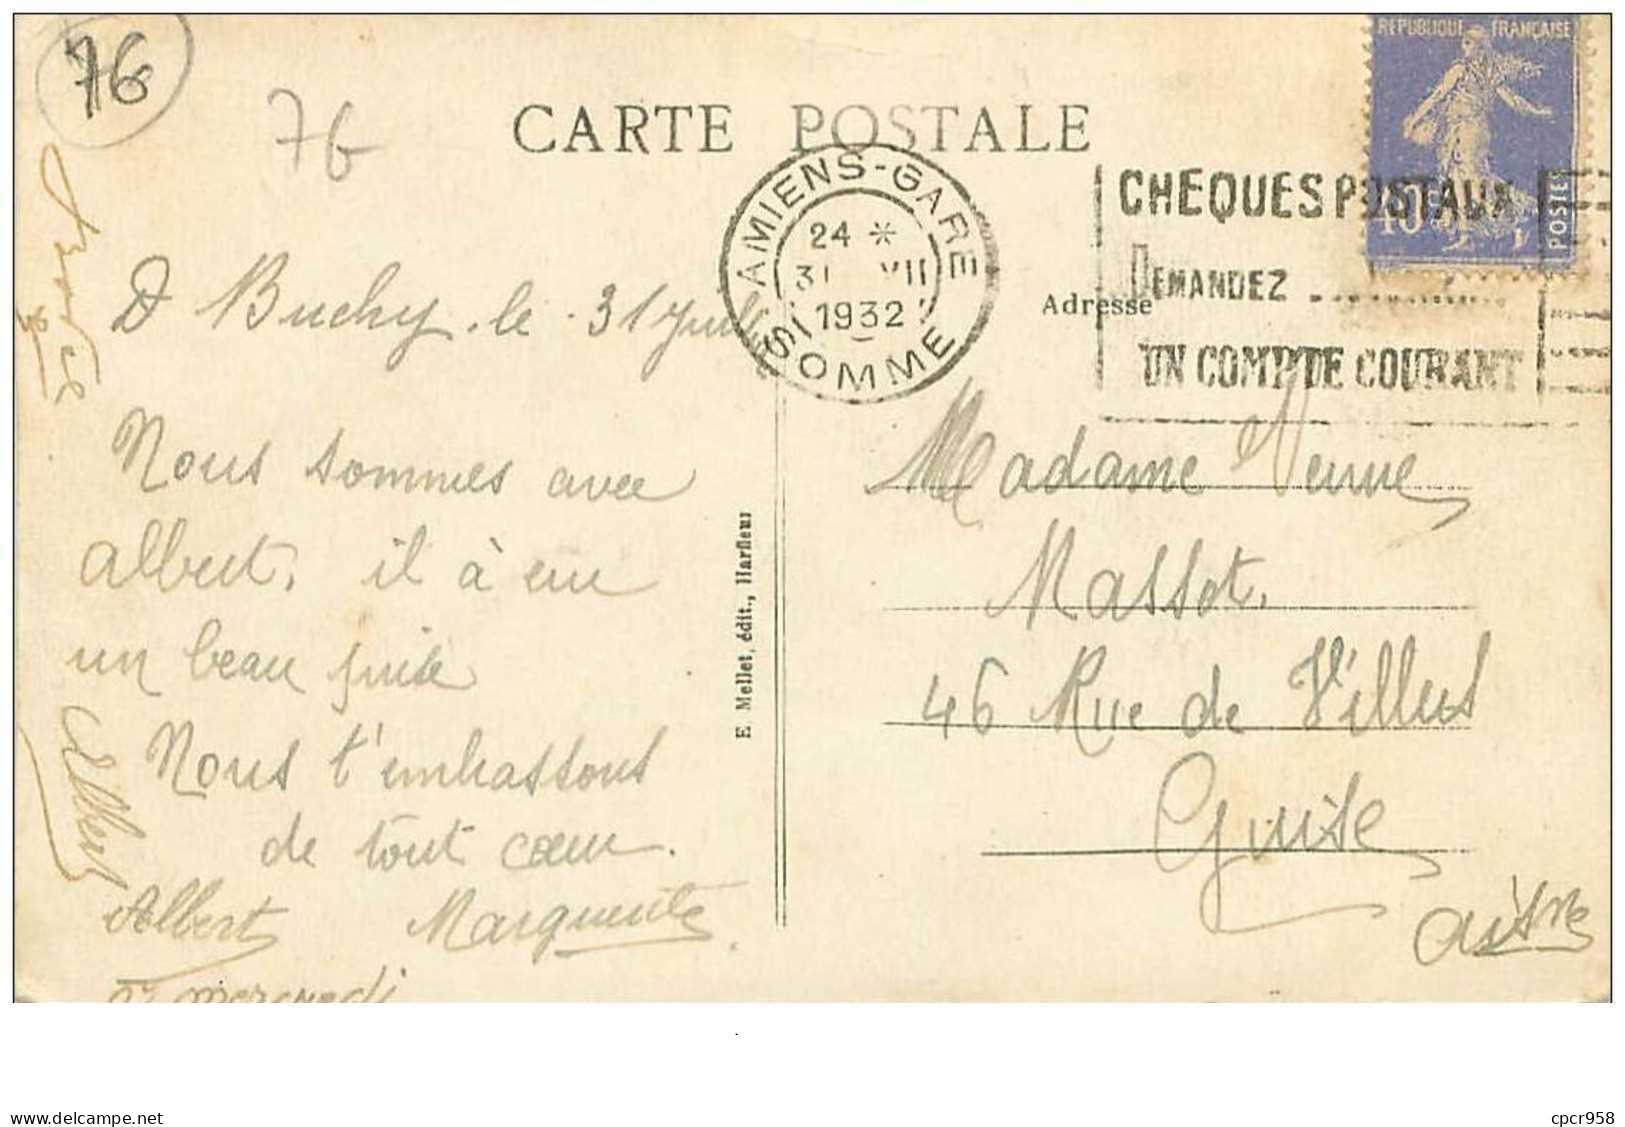 76
76
CARTE POSTALE
REPUBLIQUE FRANÇAISE
40c
POSTES
AMIENS-GARE
24 *
31 VII
1932
SOMME
CHEQUES POSTAUX
DEMANDEZ
UN COMPTE COURANT
Adresse
D Buchy. le 31 Juill
Nous sommes avec
albert. il à eu
un beau prise
Nous t'embrassons
de tout coeur.
Albert Marguerite
à mercredi
Albert
E. Mellet, édit., Harfleur
Madame Veuve
Massot.
46 Rue de Villers
Guise
Aisne
cartes postales
cpcr958